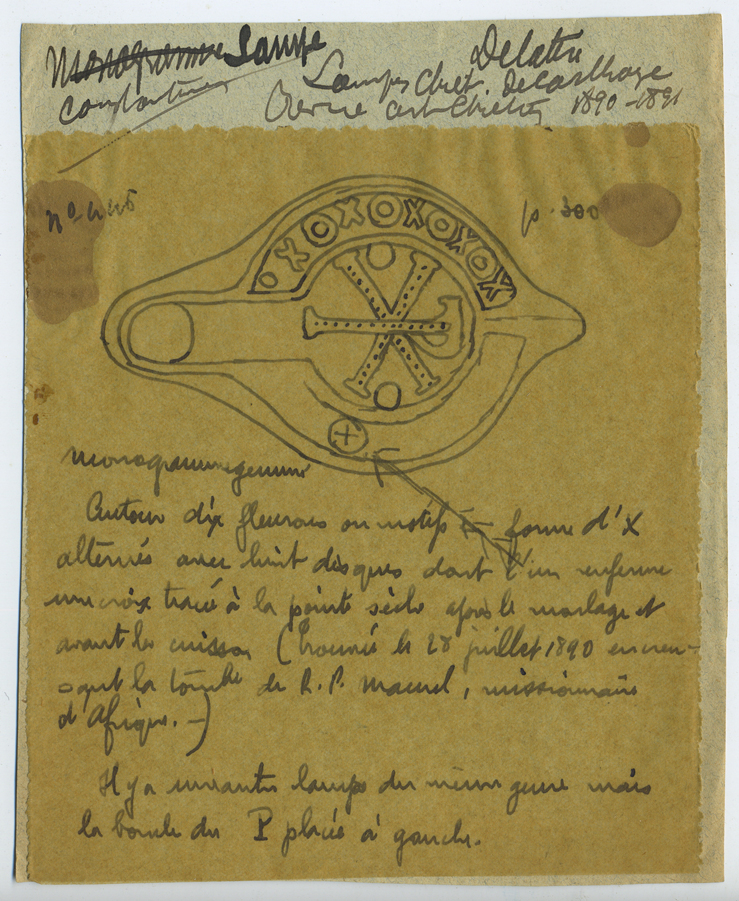 Monogramme Lampe
constantinien
Delattre
Lampes Chrét. de Carthage
Revue art Chrétien 1890-1891
n° 446
p. 300
monogramme gemmé
Autour dix fleurons ou motifs en forme d'X
alternés avec huit disques dont l'un renferme
une croix tracée à la pointe sèche après le moulage et
avant la cuisson (trouvée le 28 juillet 1890 en creu-
sant la tombe du R. P. , missionnaire
d'Afrique. -)
Il y a une autre lampe du même genre mais
la boucle du P placée à gauche.